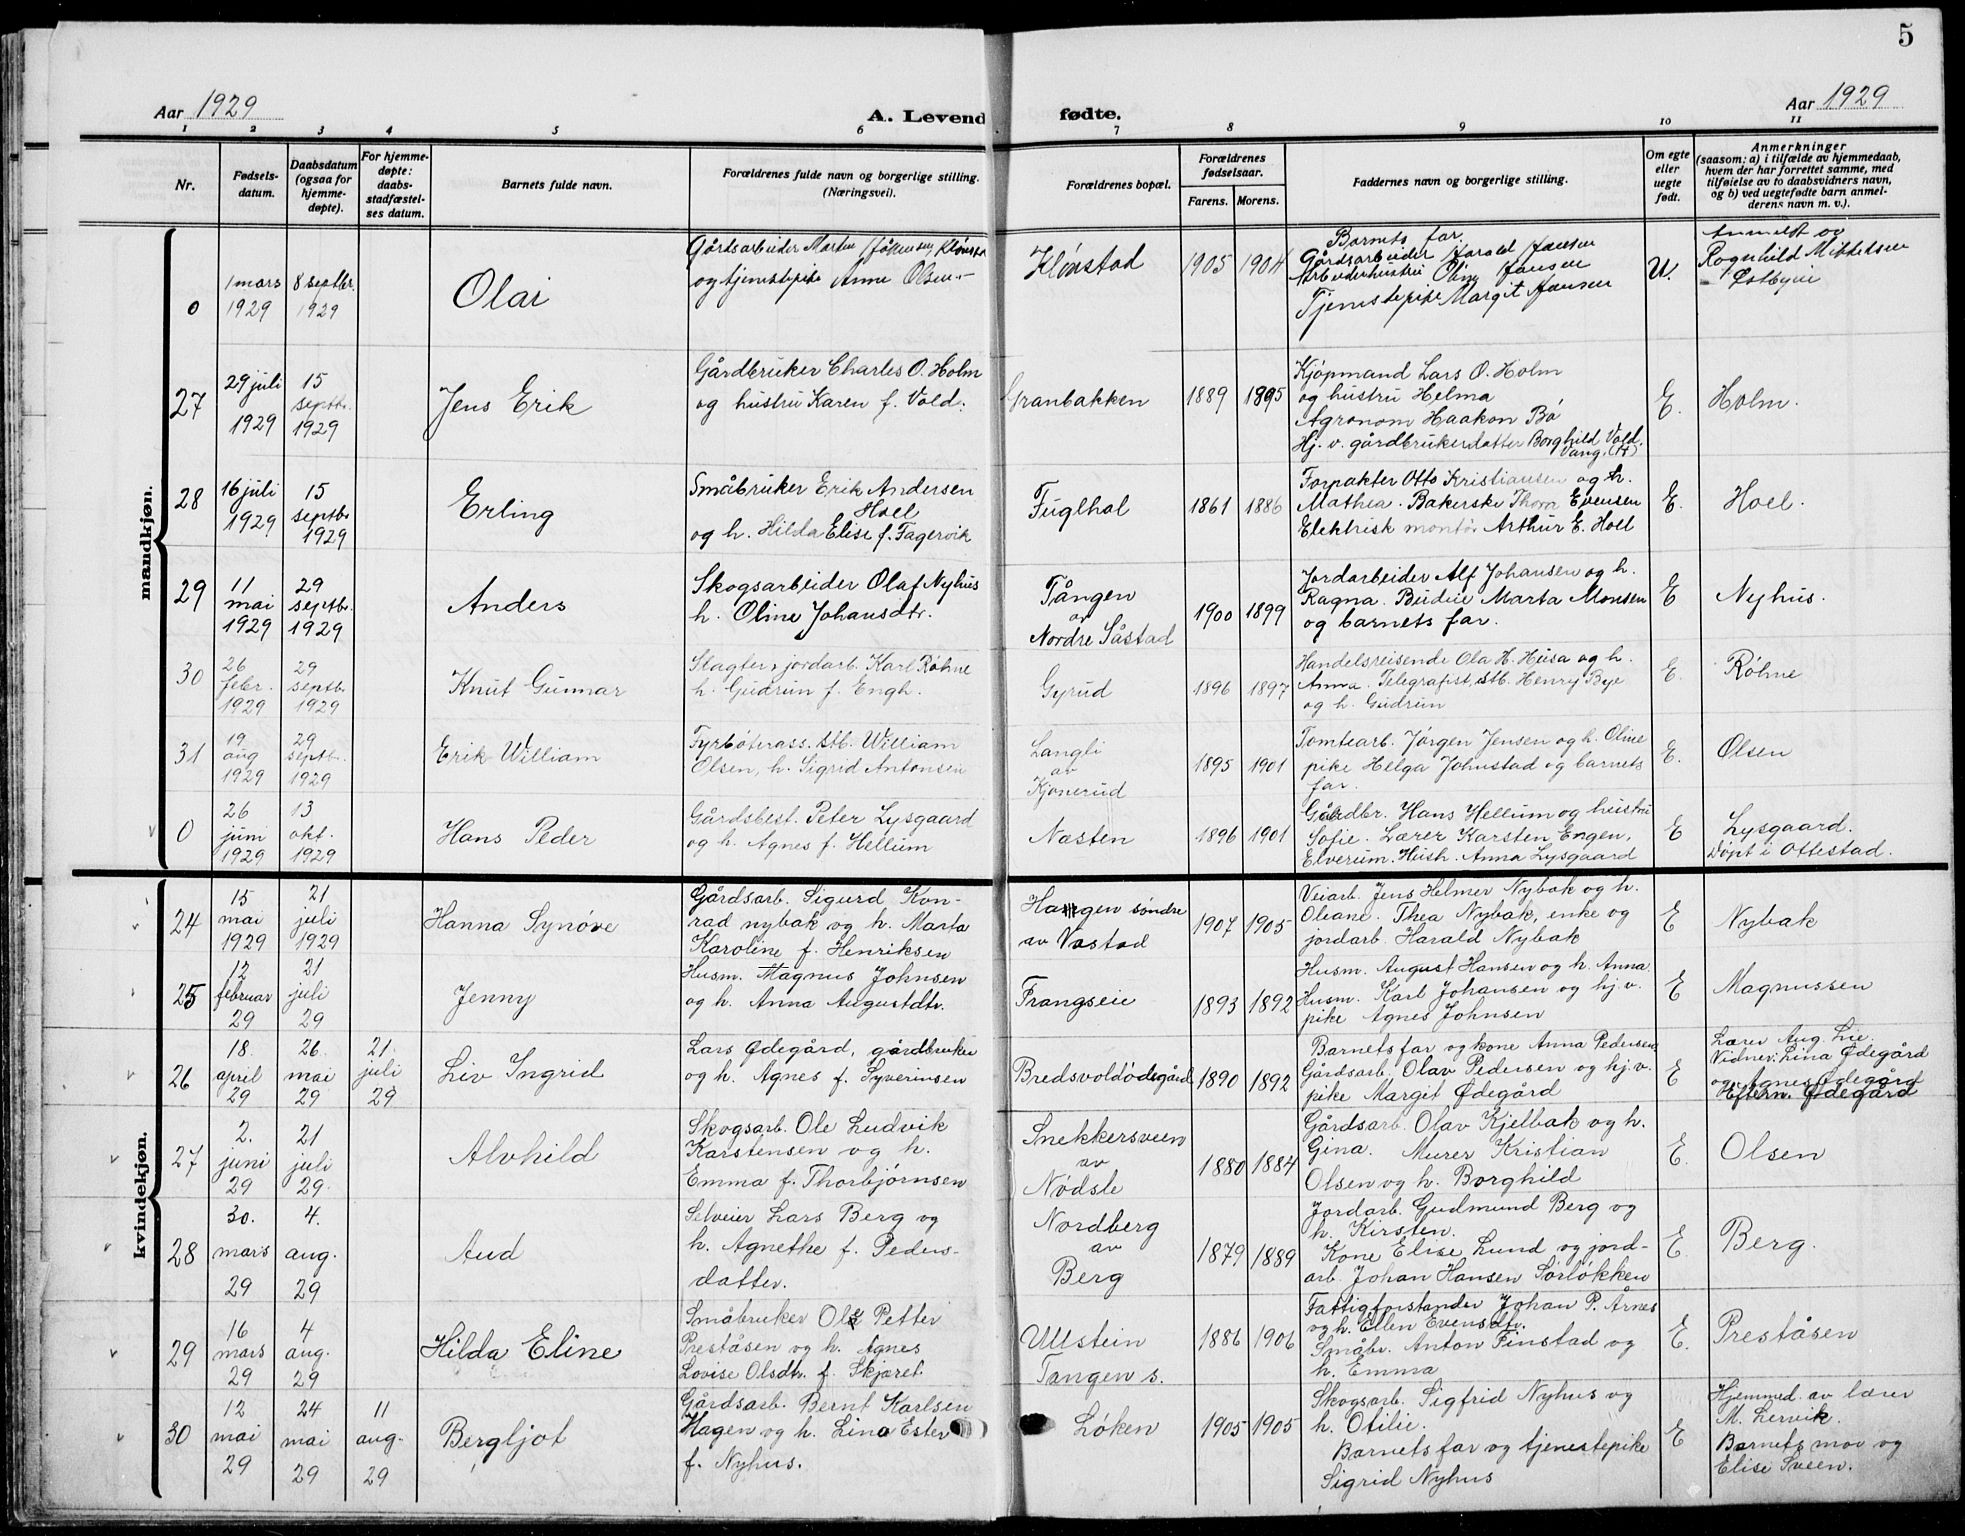 5
Aar 1929
A. Levend
fødte.
Aar 1929
1 2 3 4 5 6 7 8 9 10 11
Nr.
Fødsels-
datum.
Daabsdatum
(ogsaa for
hjemme-
døpte).
For hjemme-
døpte:
daabs-
stadfæstel-
ses datum.
Barnets fulde navn.
Forældrenes fulde navn og borgerlige stilling.
(Næringsvei).
Forældrenes bopæl.
Forældrenes
fødselsaar.
Farens. Morens.
Faddernes navn og borgerlige stilling.
Om egte
eller
uegte
født.
Anmerkninger
(saasom: a) i tilfælde av hjemmedaab,
hvem der har forrettet samme, med
tilføielse av to daabsvidners navn,
og b) ved uegtefødte barn anmel-
derens navn m. v.).
mandkjøn.
0
1 mars
1929
8 septbr.
1929
Olai
Gårdsarbeider Martin Klønstad
og tjenestepike Anne Olsen
Klønstad
1905
1904
Barnets far
Gårdsarbeider Harald Jansen
Arbeiderhustru Oline Jansen
Tjenestepike Margit Jansen
U.
Anmeldt og
Ragnhild Mikkelsen
Østbyeie
27
29 juli
1929
15
septbr.
1929
Jens Erik
Gårdbruker Charles O. Holm
og hustru Karen f. Vold.
Granbakken
1889
1895
Kjøpmand Lars O. Holm
og hustru Helma
Agronom Haakon Bø
Hj. v. gårdbrukerdatter Borghild Vold.
Vang. (H)
E.
Holm.
28
16 juli
1929
15
septbr
1929
Erling
Småbruker Erik Andersen
Hoel
og h. Hilda Elise f. Fagervik
Fuglhol
1861
1886
Forpakter Otto Kristiansen og h.
Mathea. Bakerske Thora Evensen
Elektrisk montør Arthur E. Hoel
E.
Hoel.
29
11
mai
1929
29
septbr.
1929
Anders
Skogsarbeider Olaf Nyhus
h. Oline Johansdtr.
Tången
av
Nordre Såstad
1900
1899
Jordarbeider Alf Johansen og h.
Ragna. Budeie Marta Monsen
og barnets far.
E
Nyhus.
30
26
febr.
1929
29
septb.
1929
Knut Gunnar
Slagter, jordarb. Karl Røhne
h. Gudrun f. Engh.
Gyrud
1896
1897
Handelsreisende Ola H. Husa og h.
Anna. Telegrafist, stb. Henry Bye
og h. Gudrun
E.
Røhne
31
19
aug
1929
29
septbr.
1929
Erik William
Fyrbøterass. stb. William
Olsen, h. Sigrid Antonsen
Langli
av
Kjonerud
1895
1901
Tomtearb. Jørgen Jensen og h. Oline
pike Helga Johnstad og barnets
far.
E.
Olsen
0
26
juni
1929
13
okt.
1929
Hans Peder
Gårdsbest. Peter Lysgaard
og h. Agnes f. Hellum
Næsten
1896
1901
Gårdbr. Hans Hellum og hustru
Sofie. Lærer Karsten Engen,
Elverum. Hush. Anna Lysgaard
E
Lysgaard.
Døpt i Ottestad.
kvindekjøn.
24
15
mai
1929
21
juli
1929
Hanna Synøve
Gårdsarb. Sigurd Kon-
rad nybak og h. Marta
Karoline f. Henriksen
søndre
av Vastad
1907
1905
Veiarb. Jens Helmer Nybak og h.
Oleane. Thea Nybak, enke og
jordarb. Harald Nybak
E
Nybak
25
12
februar
29
21
juli
29
Jenny
Husm. Magnus Johnsen
og h. Anna Augustdtr.
Frangseie
1893
1892
Husm. August Hansen og h. Anna
Husm. Karl Johansen og hj. v.
pike Agnes Johnsen
E
Magnussen
26
18.
april
29
26.
mai
29
21.
juli
29
Liv Ingrid
Lars Ødegård, gårdbruker
og h. Agnes f. Syverinsen
Bredsvoldødegård
1890
1892
Barnets far og kone Anna Pedersen
Gårdsarb. Olav Pedersen og hj. v.
pike Margit Ødegård
E
Lærer Aug. Lie.
Vidner: Lina Ødegård
og Agnes Ødegård
Eftern. Ødegård
27
2.
juni
29
21
juli
29.
Alvhild
Skogsarb. Ole Ludvik
Karstensen og h.
Emma f. Thorbjørnsen
Snekkersveen
av
Nødsle
1880
1884
Gårdsarb. Olav Kjelbak og h.
Gina. Murer Kristian
Olsen og h. Borghild
E.
Olsen
28
30.
mars
29
4.
aug.
29
Aud
Selveier Lars Berg og
h. Agnethe f. Peders-
datter.
Nordberg
av
Berg
1879
1889
Jordarb. Gudmund Berg og
h. Kirsten.
Kone Elise Lund og jord-
arb. Johan Hansen Sørløkken
E.
Berg.
29
16
mars
29
4
aug.
29
Hilda Eline
Småbruker Ole Petter
Preståsen og h. Agnes
Lovise Olsdtr. f. Skjæret.
Ullstein
Tangen s.
1886
1906
Fattigforstander Johan P. Årnes
og h. Ellen Evensdtr.
Småbr. Anton Finstad og
h. Emma
E.
Preståsen
30
12
mai
29
24
mai
29
11
aug.
29
Bergljot
Gårdsarb. Bernt Karlsen
Hagen og h. Lina Ester
f. Nyhus.
Løken
1905
1905
Skogsarb. Sigfrid Nyhus og
h. Otilie.
Barnets far og tjenestepike
Sigrid Nyhus
E
Hjemmed. av lærer
M. Lervik.
Barnets mor og
Elise Sveen.